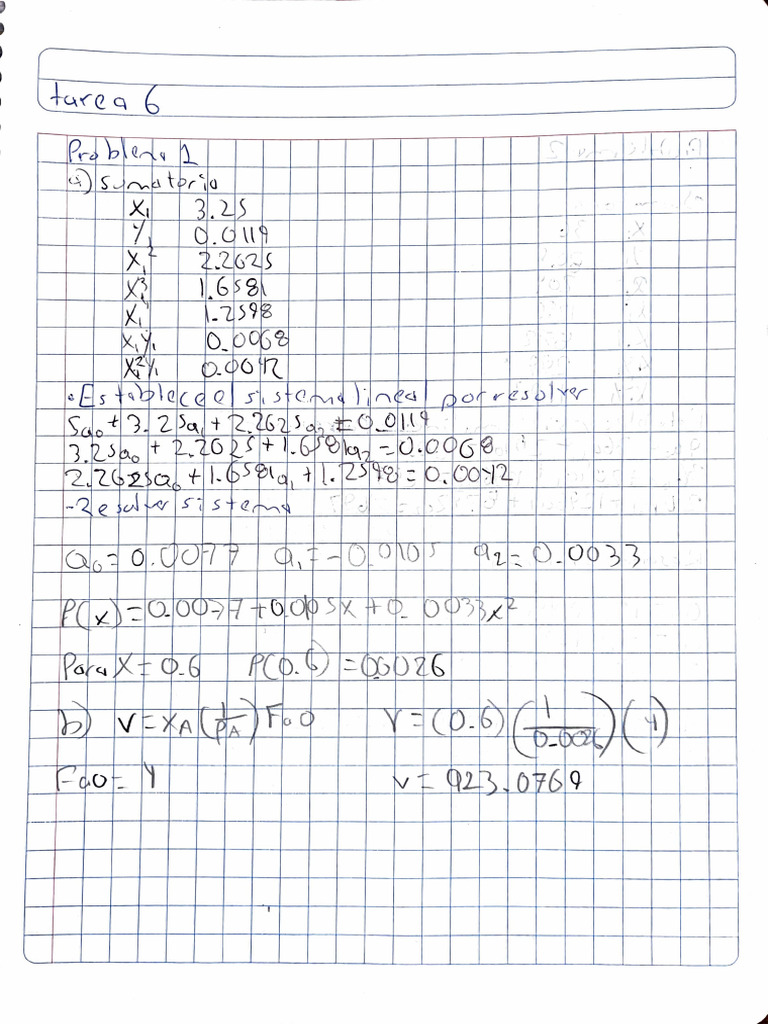 tarea 6
Problema 1
a) sumatoria
X₁ 3.25
Y₁ 0.0119
X₁² 2.2625
X₁³ 1.6581
X₁⁴ 1.2598
X₁Y₁ 0.0068
X₁²Y₁ 0.0042
• Establece el sistema lineal por resolver
5a₀ + 3.25a₁ + 2.2625a₂ = 0.0119
3.25a₀ + 2.2625 + 1.6581a₂ = 0.0068
2.2625a₀ + 1.6581a₁ + 1.2598 = 0.0042
- Resolver sistema
a₀ = 0.0077 a₁ = -0.0105 a₂ = 0.0033
P(x) = 0.0077 + 0.0105x + 0.0033x²
Para X = 0.6 P(0.6) = 0.0026
b) V = XA (1/PA) Fa0 V = (0.6) (1/0.0026) (4)
Fa0 = 4 V = 923.0769